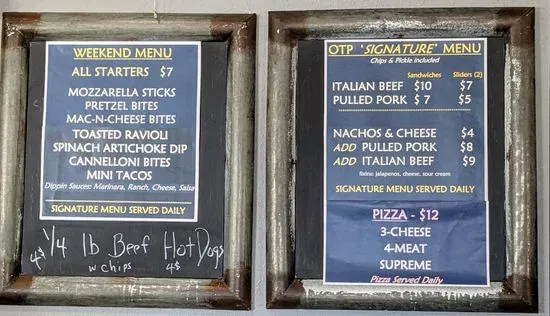 WEEKEND MENU
ALL STARTERS $7
MOZZARELLA STICKS
PRETZEL BITES
MAC-N-CHEESE BITES
TOASTED RAVIOLI
SPINACH ARTICHOKE DIP
CANNELLONI BITES
MINI TACOS
Dippin Sauces: Marinara, Ranch, Cheese, Salsa
SIGNATURE MENU SERVED DAILY
4$ 1/4 lb Beef Hot Dogs
w chips 4$
OTP 'SIGNATURE' MENU
Chips & Pickle included
Sandwiches Sliders (2)
ITALIAN BEEF $10 $7
PULLED PORK $ 7 $5
NACHOS & CHEESE $4
ADD PULLED PORK $8
ADD ITALIAN BEEF $9
fixins: jalapenos, cheese, sour cream
SIGNATURE MENU SERVED DAILY
PIZZA - $12
3-CHEESE
4-MEAT
SUPREME
Pizza Served Daily